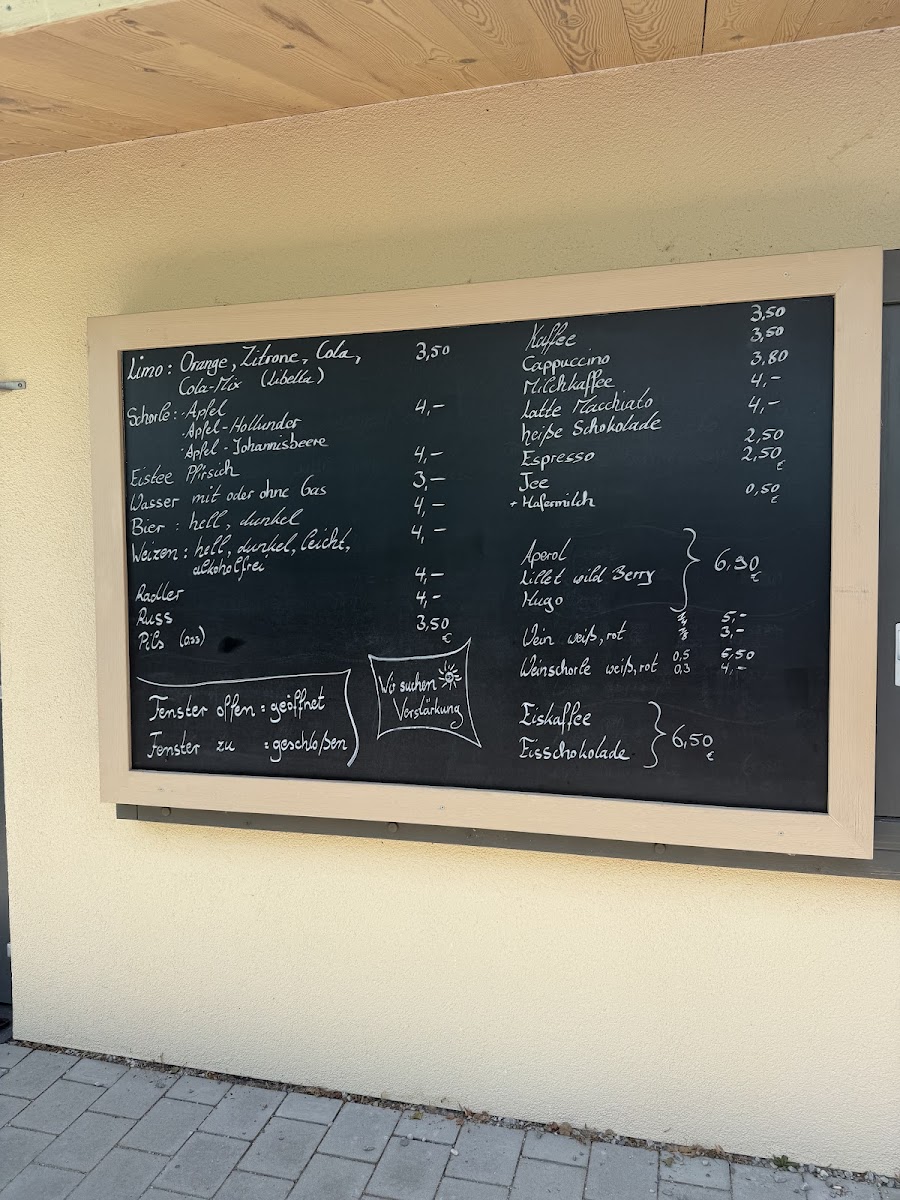 Limo: Orange, Zitrone, Cola, 3,50
Cola-Mix (Libella)
Schorle: · Apfel 4,–
· Apfel-Hollunder
· Apfel-Johannisbeere
Eistee Pfirsich 4,–
Wasser mit oder ohne Gas 3,–
Bier: hell, dunkel 4,–
Weizen: hell, dunkel, leicht, 4,–
alkoholfrei
Radler 4,–
Russ 4,–
Pils (0,33) 3,50
€
Fenster offen = geöffnet
Fenster zu = geschloßen
Wir suchen
Verstärkung
Kaffee 3,50
Cappuccino 3,50
Milchkaffee 3,80
Latte Macchiato 4,–
heiße Schokolade 4,–
Espresso 2,50
Tee 2,50
€
+ Hafermilch 0,50
€
Aperol
Lillet wild Berry } 6,90
€
Hugo
Wein weiß, rot 5,–
3,–
Weinschorle weiß, rot 0,5
0,3 4,–
Eiskaffee
Eisschokolade } 6,50
€